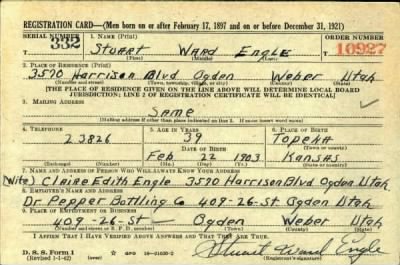 REGISTRATION CARD—(Men born on or after February 17, 1897 and on or before December 31, 1921)
SERIAL NUMBER 1. NAME (Print) ORDER NUMBER
T 332 Stuart Ward Engle 10927
(First) (Middle) (Last)
2. PLACE OF RESIDENCE (Print)
3570 Harrison Blvd Ogden Weber Utah
(Number and street) (Town, township, village, or city) (County) (State)
[THE PLACE OF RESIDENCE GIVEN ON THE LINE ABOVE WILL DETERMINE LOCAL BOARD
JURISDICTION; LINE 2 OF REGISTRATION CERTIFICATE WILL BE IDENTICAL]
3. MAILING ADDRESS
Same
[Mailing address if other than place indicated on line 2. If same insert word same]
4. TELEPHONE 5. AGE IN YEARS 6. PLACE OF BIRTH
23826 39 Topeka
DATE OF BIRTH (Town or county)
Feb 22 1903 Kansas
(Exchange) (Number) (Mo.) (Day) (Yr.) (State or country)
7. NAME AND ADDRESS OF PERSON WHO WILL ALWAYS KNOW YOUR ADDRESS
(Wife) Claire Edith Engle 3570 Harrison Blvd Ogden Utah
8. EMPLOYER'S NAME AND ADDRESS
Dr Pepper Bottling Co 409-26-St Ogden Utah
9. PLACE OF EMPLOYMENT OR BUSINESS
409-26-St Ogden Weber Utah
(Number and street or R. F. D. number) (Town) (County) (State)
I AFFIRM THAT I HAVE VERIFIED ABOVE ANSWERS AND THAT THEY ARE TRUE.
D. S. S. Form 1
(Revised 1-1-42) (over) GPO 16-21630-2 Stuart Ward Engle
(Registrant's signature)